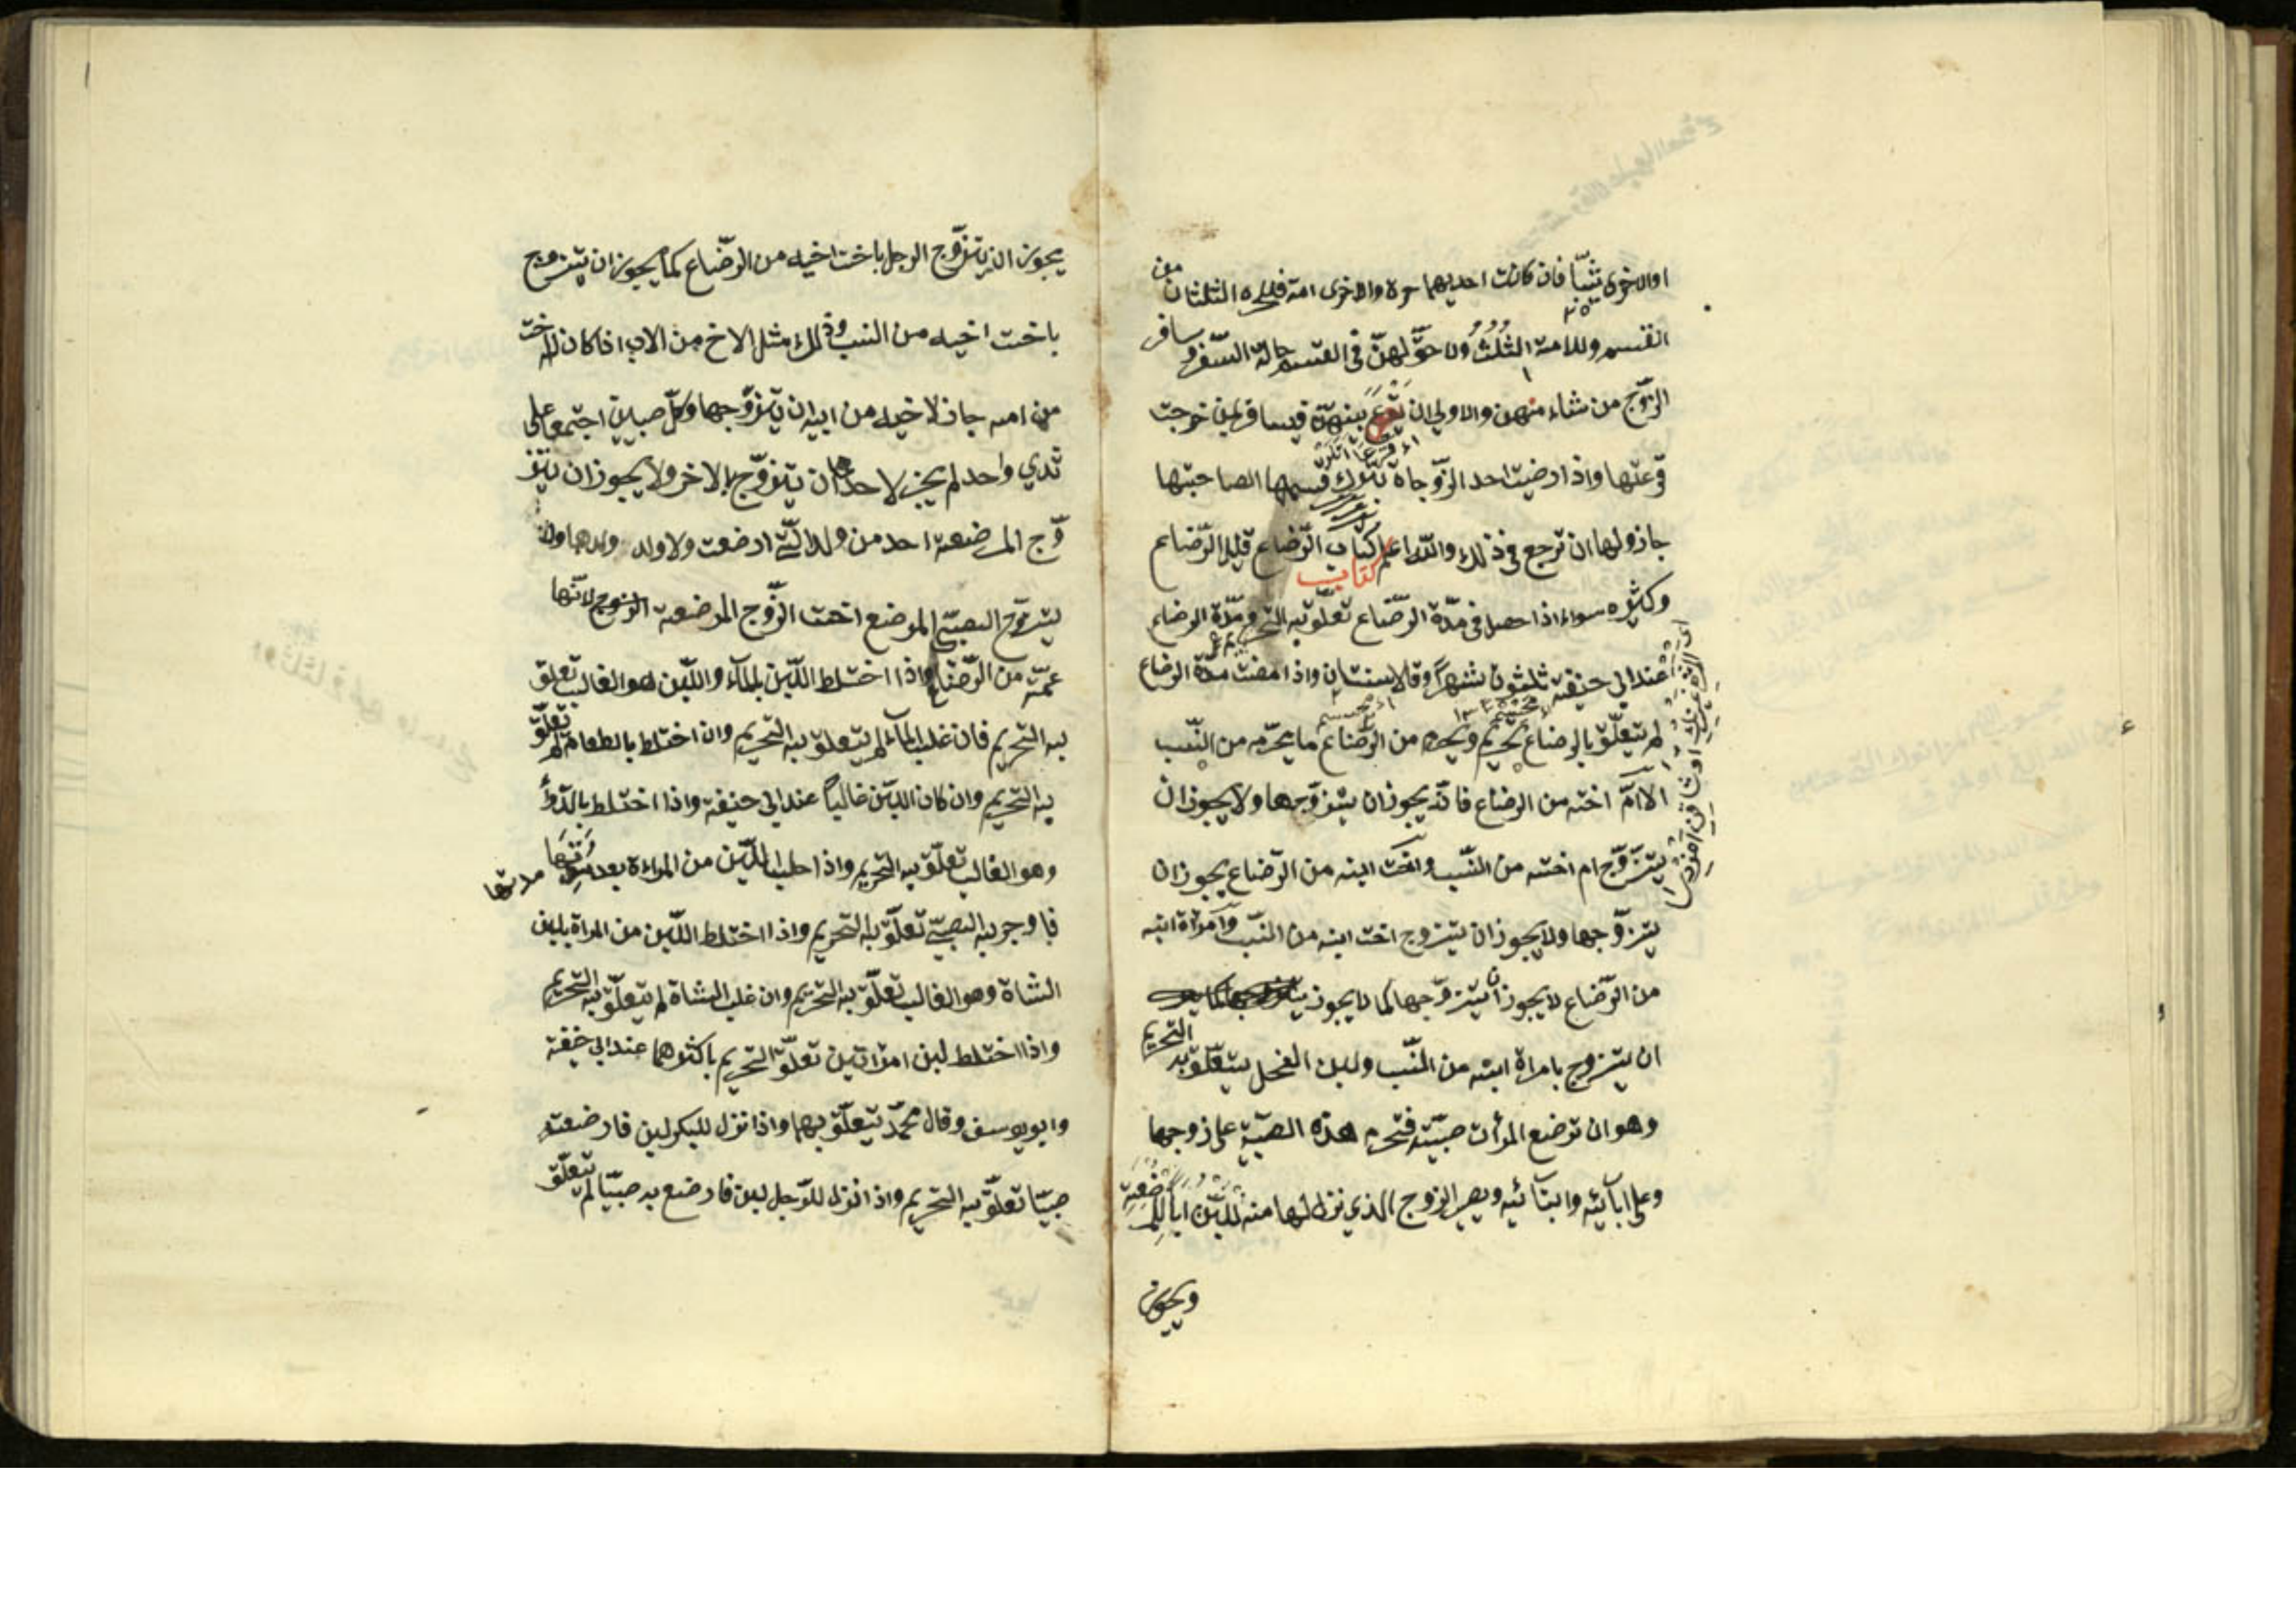 او الاخرى ثيبّا فان كانت احديهما حرة والاخرى امة فللحرة الثلثان من
القسم وللامة الثُلُثُ ولا حقّ لهنّ في القسم حالة السّفر و سافر
الزّوج من شاء منهن والاولى ان يقرع بينهنّ فيسافر لمن خرجت
قرعتها واذا رضيت احد الزّوجاة بترك قسمها لصاحبتها
جاز ولها ان ترجع في ذلك والله اعلم كتاب الرّضاع قليل الرّضاع
كتاب
وكثيره سواء اذا حصل في مدّة الرّضاع تعلّق به التحريم ومدّة الرضاع
عند ابي حنيفة ثلثون شهرًا وقالا سنتان واذا مضت مدّة الرضاع
لم يتعلّق بالرضاع تحريم ويحرم من الرّضاع ما يحرّم من النّسب
الا امّ اخته من الرضاع فانّه يجوز ان يتزوّجها ولا يجوز ان
يتزوّج ام اخته من النّسب واخت ابنه من الرّضاع يجوز ان
يتزوّجها ولا يجوز ان يتزوج اخت ابنه من النّسب وامرأة ابنه
من الرّضاع لا يجوز ان يتزوّجها كما لا يجوز
ان يتزوج بامراة ابنه من النّسب ولبن الفحل يتعلّق به التحريم
وهو ان ترضع المرأن صبيّة فتحرم هذه الصبيّة على زوجها
وعلى ابآئه وابنآئه ويصير الزوج الذي نزل لها منه اللّبن ابًا للمرضعة
ويجوز
يجوز ان يتزوّج الرجل باخت اخيه من الرّضاع كما يجوز ان يتزوج
باخت اخيه من النسب وذلك مثل الاخ من الاب اذا كان له اخت
من امه جاز لاخيه من ابيه ان يتزوّجها وكلّ صبيين اجتمعا على
ثدي واحد لم يجز لاحدهما ان يتزوّج بالاخر ولا يجوز ان يتز
وّج المرضعة احد من ولد الّتي ارضعت ولا ولد ولدها ولا
يتزوّج الصبيّ المرضع اخت الزّوج المرضعة لانّها
عمّته من الرّضاع واذا اختلط اللّبن بالمآء واللّبن هو الغالب تعلق
به التّحريم فان غلب المآء لم يتعلّق به التّحريم وان اختلط بالطعام لم يتعلّق
به التّحريم وان كان اللّبن غالبًا عند ابي حنيفة واذا اختلط بالدّوأ
وهو الغالب تعلّق به التّحريم واذا حلب اللّبن من المراءة بعد موتها
فاوجر به الصبيّ تعلّق به التّحريم واذا اختلط اللّبن من المراة بلبن
الشاة وهو الغالب تعلّق به التّحريم وان غلب الشاة لم يتعلّق به التّحريم
واذا اختلط لبن امراتين تعلّق التّحريم باكثرهما عند ابي حنيفة
وابو يوسف وقال محمّد يتعلّق بهما واذا نزل للبكر لبن فارضعته
صبيّا تعلّق به التّحريم واذا انزل للرّجل لبن فارضع به صبيّا لم يتعلّق